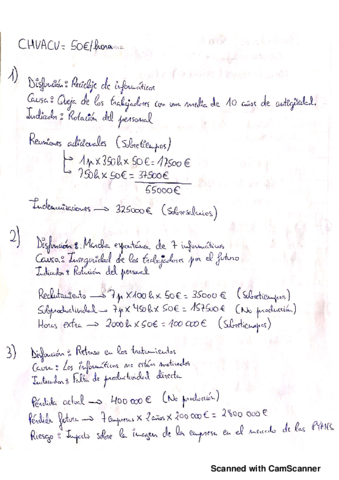 CHVACV = 50€/hora
1)
Disfunción: Reciclaje de informáticos
Causa: Queja de los trabajadores con una media de 10 años de antigüedad.
Indicador: Rotación del personal
Reuniones adicionales (Sobretiempos)
1p x 350h x 50€ = 17500€
750h x 50€ = 37500€
55000€
Indemnizaciones → 325000€ (Sobresalarios)
2)
Disfunción: Marcha espontánea de 7 informáticos
Causa: Inseguridad de los trabajadores por el futuro
Indicador: Rotación del personal
Reclutamiento → 7p x 100h x 50€ = 35000€ (Sobretiempos)
Subproductividad → 7p x 450h x 50€ = 157500€ (No producción)
Horas extra → 2000h x 50€ = 100000€ (Sobretiempos)
3)
Disfunción: Retraso en los tratamientos
Causa: Los informáticos no están motivados
Indicador: Falta de productividad directa
Pérdida actual → 400000€ (No producción)
Pérdida futura → 7 empresas x 2 años x 200000€ = 2800000€
Riesgo: Impacto sobre la imagen de la empresa en el mercado de las PYMES
Scanned with CamScanner